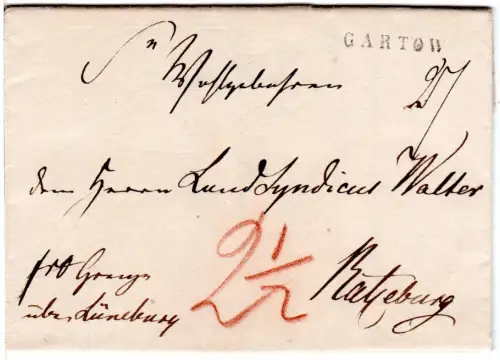 GARTOW
Sr Wohlgebohren
27
dem Herrn LandSyndicus Walter
2 1/2
fro Grenze
Ratzeburg
über Lüneburg